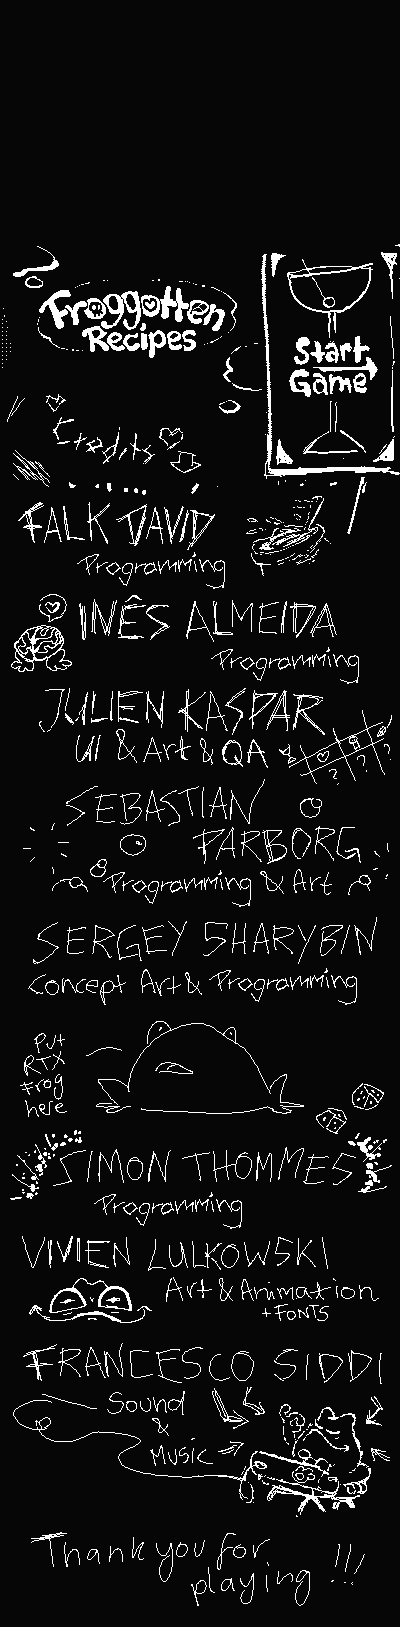 Froggotten
Recipes
Start
Game
Credits
FALK DAVID
Programming
INÊS ALMEIDA
Programming
JULIEN KASPAR
UI & Art & QA
? ? ?
SEBASTIAN
PARBORG
Programming & Art
SERGEY SHARYBIN
Concept Art & Programming
Put
RTX
Frog
here
SIMON THOMMES
Programming
VIVIEN LULKOWSKI
Art & Animation
+ FONTS
FRANCESCO SIDDI
Sound
&
Music
Thank you for
playing !!!